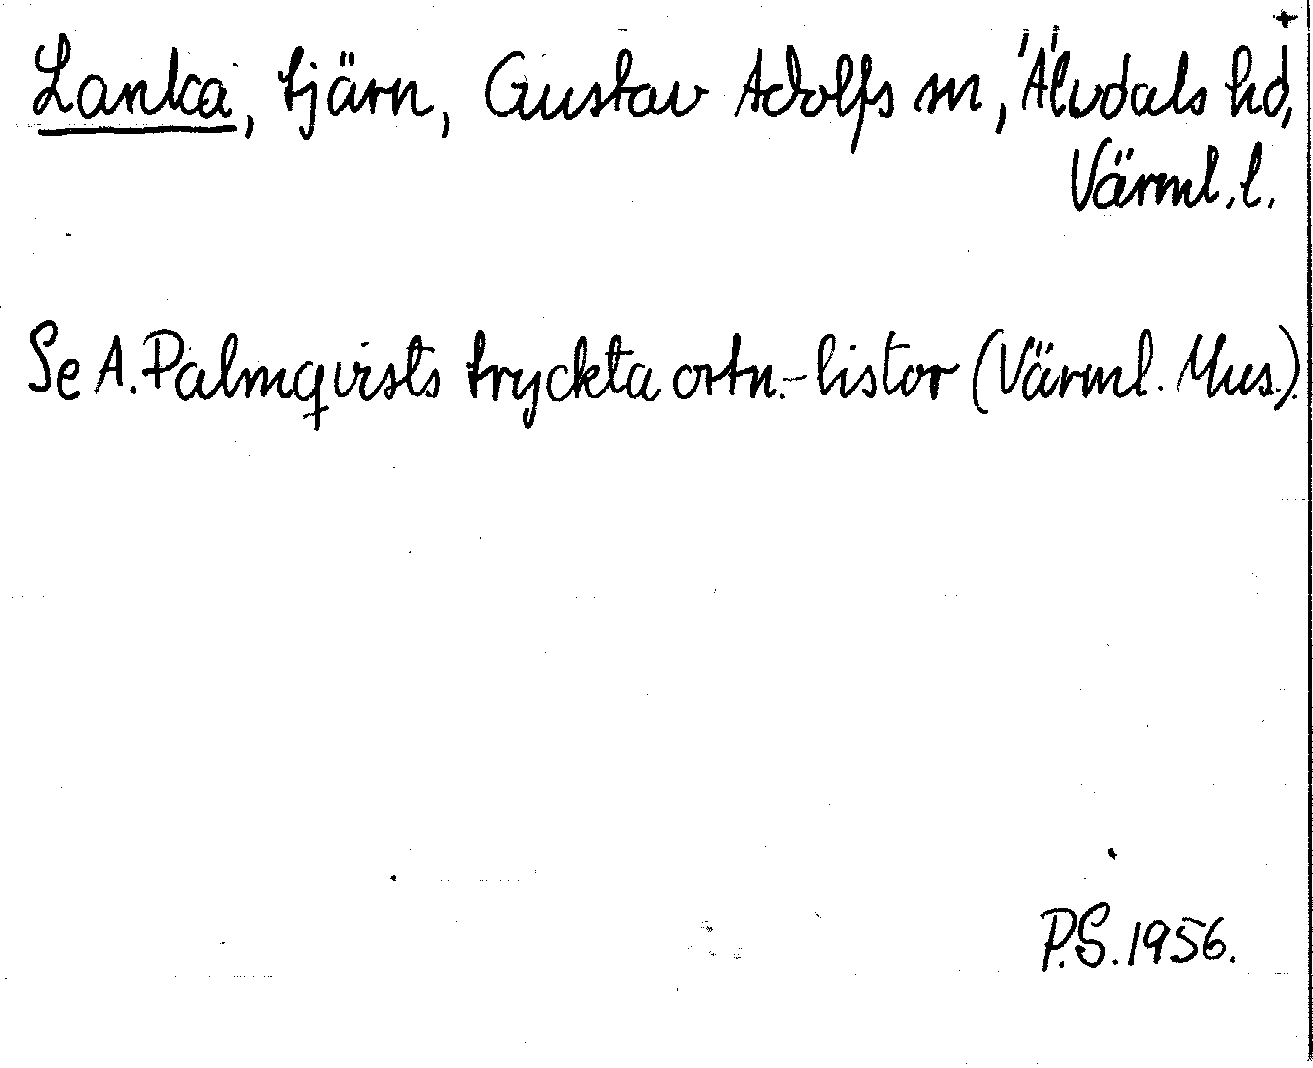 +
Lanka, tjärn, Gustav Adolfs sn, Älvdals hd,
Värml. l.
Se A. Palmqvists tryckta ortn.-listor (Värml. Mus.).
P.S. 1956.